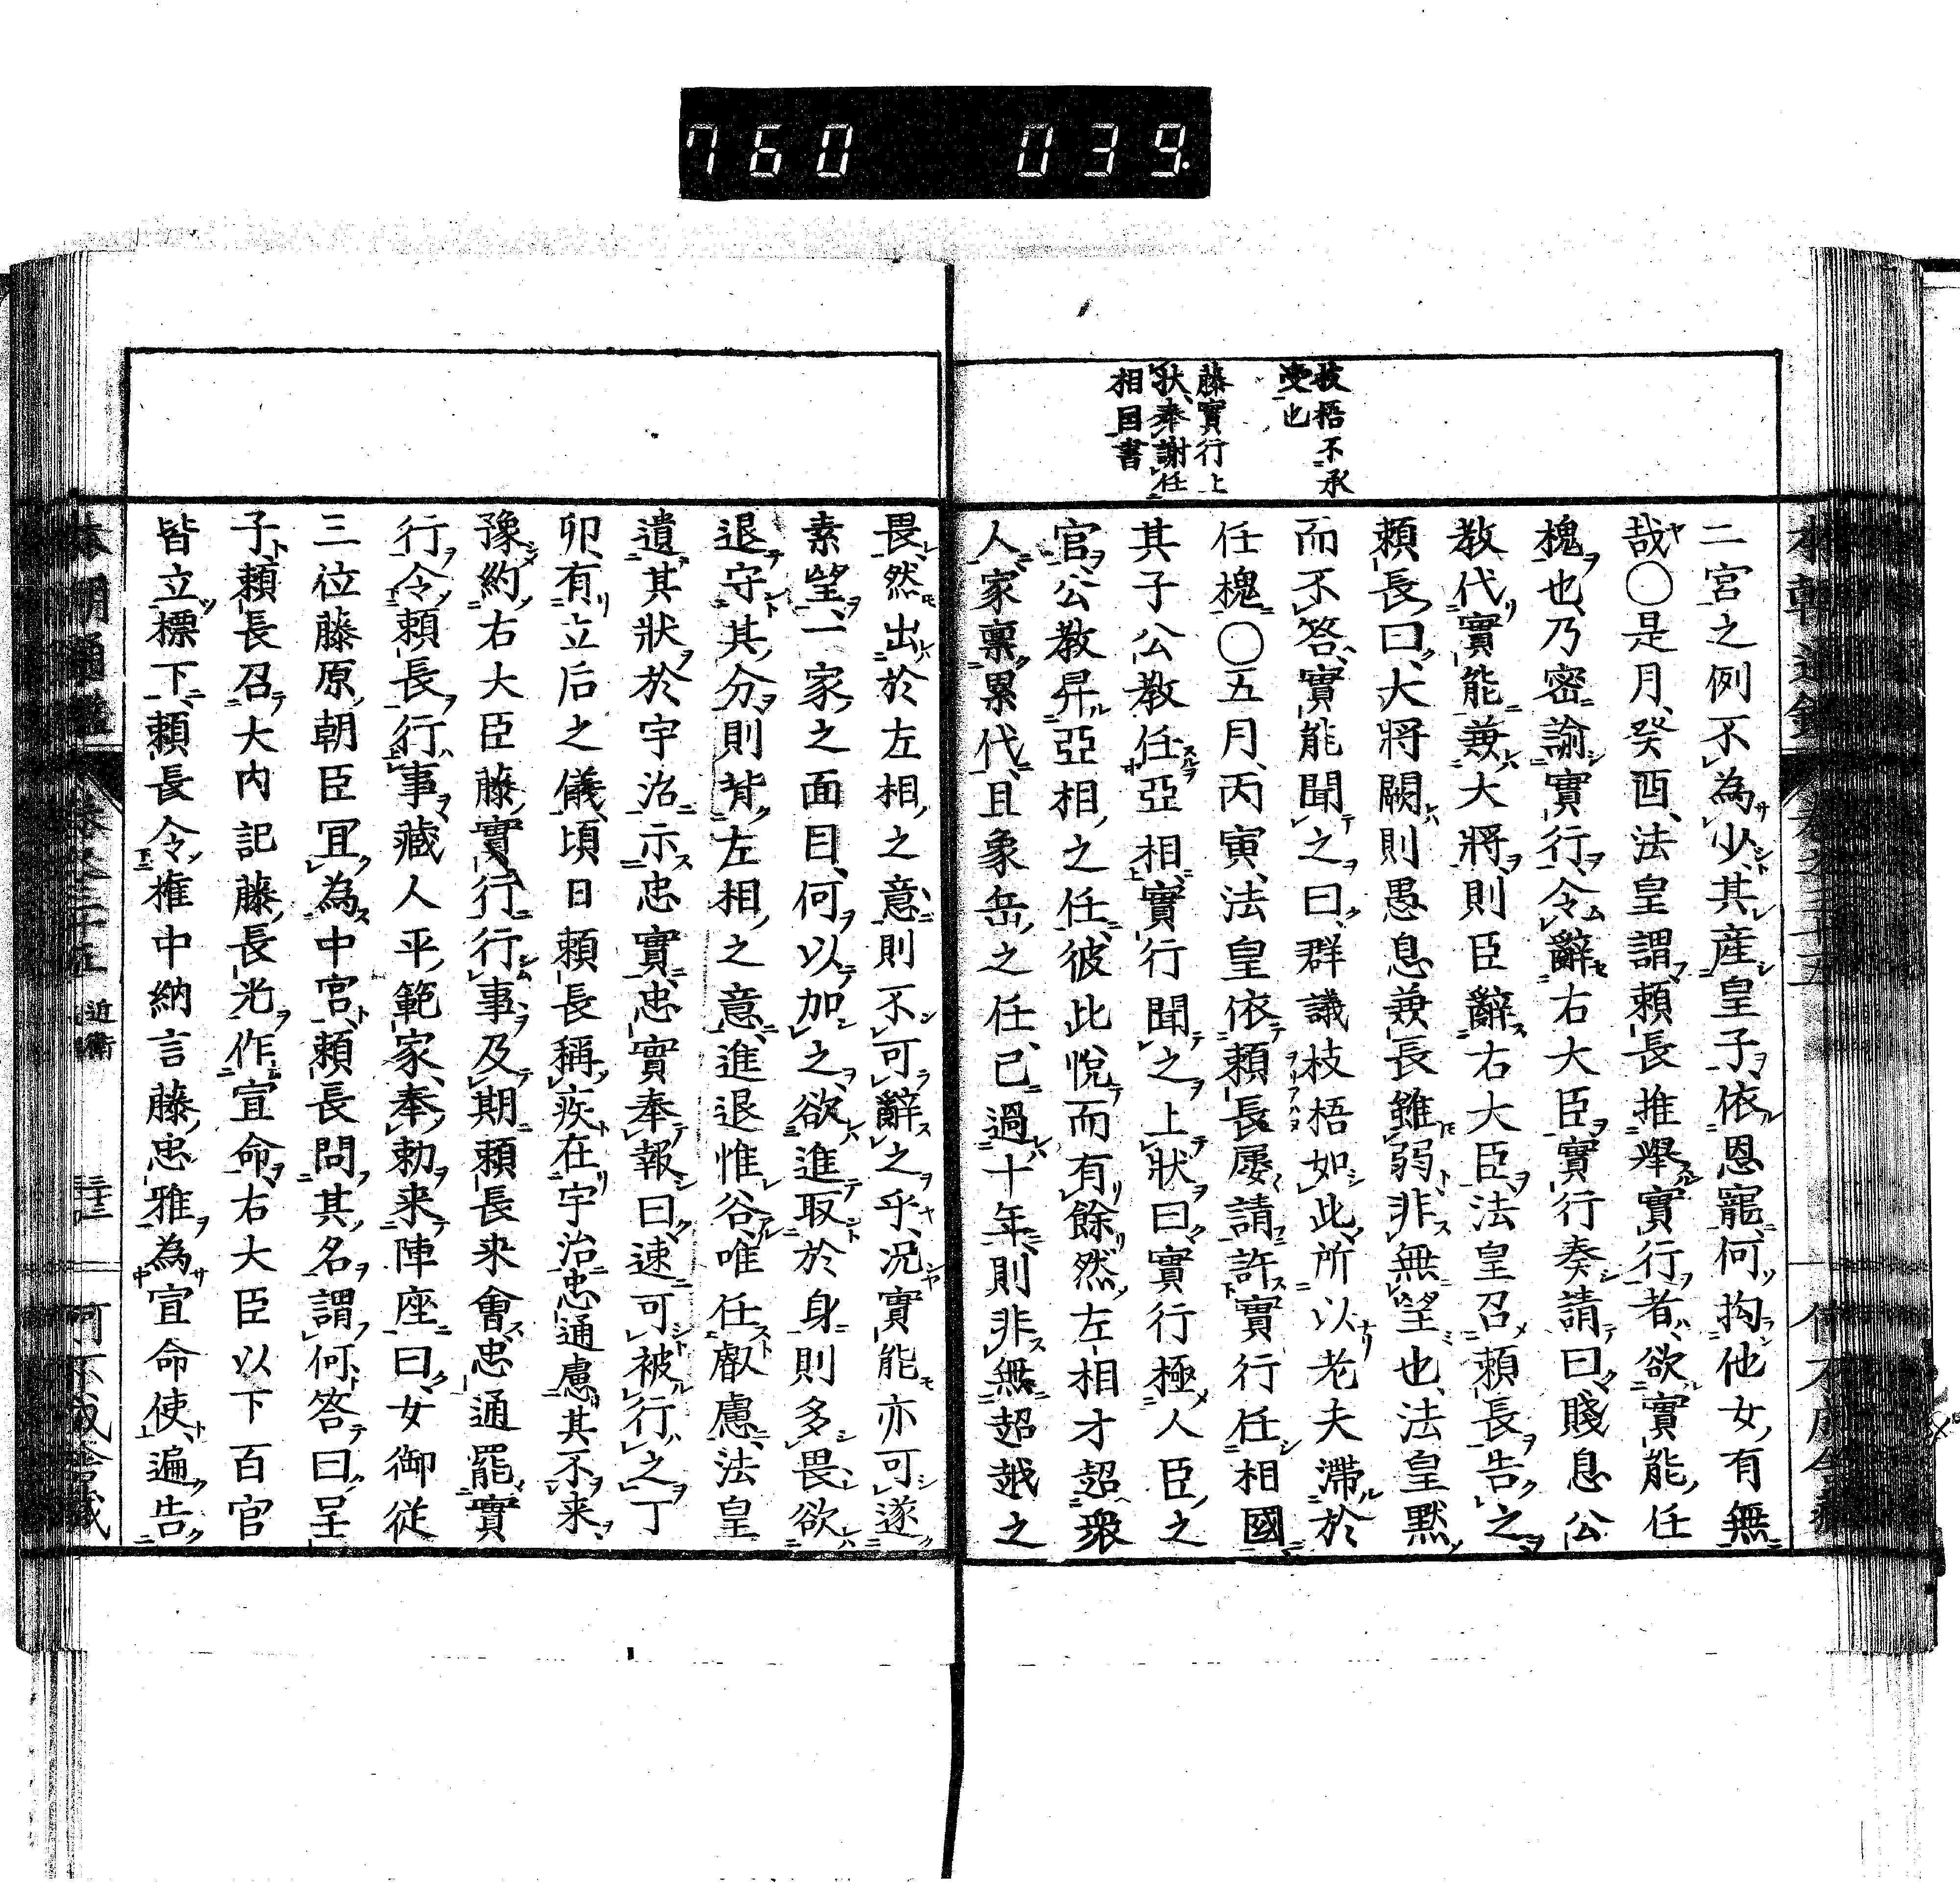 760 039
枝梧不承
受也
藤實行上
狀奉謝任
相國書
二宮之例不為少其産皇子依恩寵何拘他女有無
哉〇是月癸酉法皇謂賴長推舉實行者欲實能任
槐也乃密諭實行令辭右大臣實行奏請曰賤息公
教代實能兼大將則臣辭右大臣法皇召賴長告之
賴長曰大將闕則愚息兼長雖弱非無望也法皇黙
而不答實能聞之曰群議枝梧如此所以老夫滯於
任槐〇五月丙寅法皇依賴長屢請許實行任相國
其子公教任亞相實行聞之上狀曰實行極人臣之
官公教昇亞相之任彼此悅而有餘然左相才超衆
人家稟累代且象岳之任已過十年則非無超越之
畏然出於左相之意則不可辭之乎況實能亦可遂
素望一家之面目何以加之欲進取於身則多畏欲
退守其分則背左相之意進退惟谷唯任叡慮法皇
遺其狀於宇治示忠實忠實奉報曰速可被行之丁
卯有立后之儀頃日賴長稱疾在宇治忠通慮其不来
豫約右大臣藤實行行事及期賴長来會忠通罷實
行令賴長行事藏人平範家奉勅来陣座曰女御従
三位藤原朝臣冝為中宮賴長問其名謂何答曰呈
子賴長召大内記藤長光作宣命右大臣以下百官
皆立標下賴長令権中納言藤忠雅為宣命使遍告
近衛